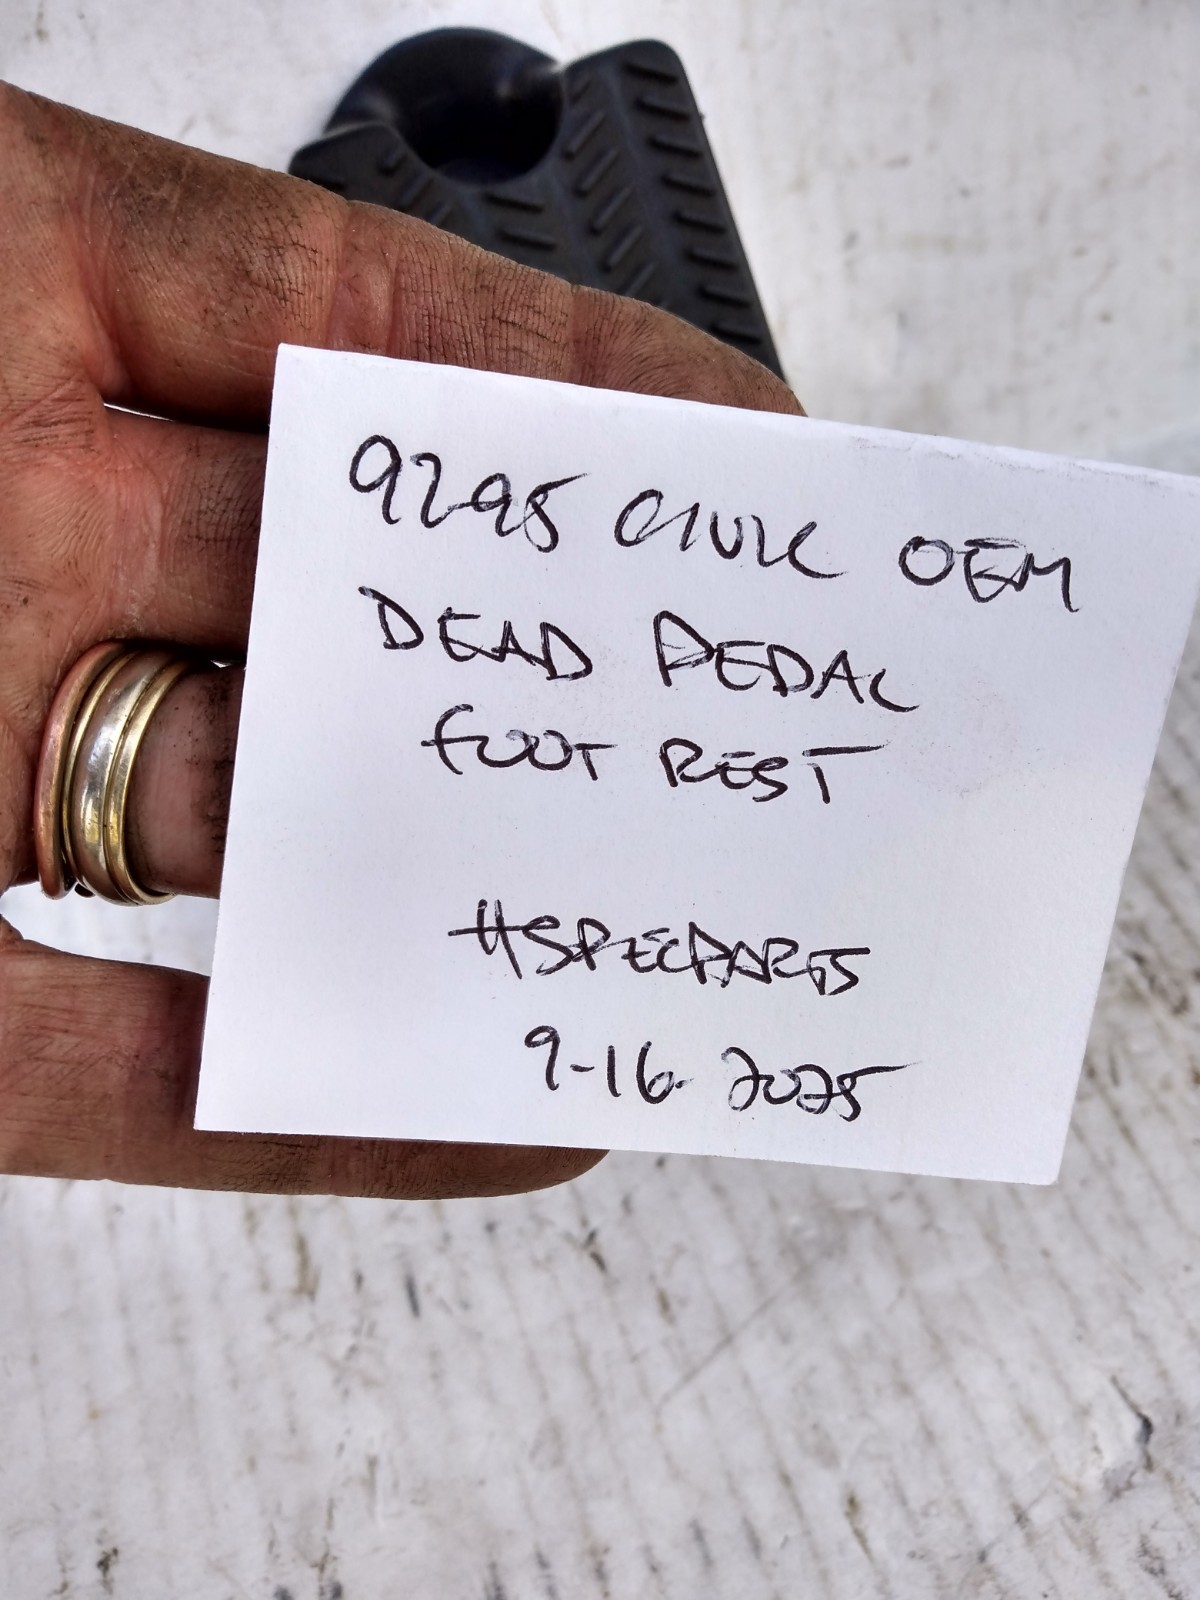 92-95 CIVIC OEM
DEAD PEDAL
FOOT REST
#SPECPARTS
9-16-2025